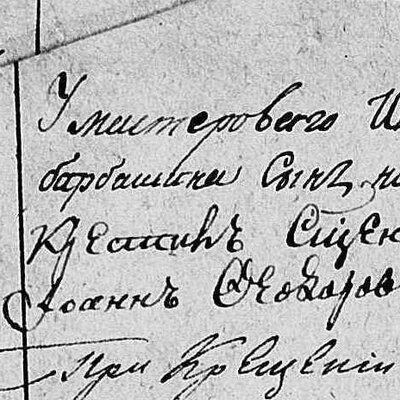 У мастероваго И
барбашина Сынъ
Крестилъ Сщен
Иоаннъ Ѳеодоров
При Крещеніи